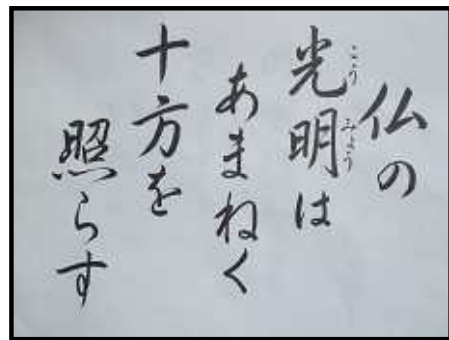 仏の
光明は
こうみょう
あまねく
十方を
照らす